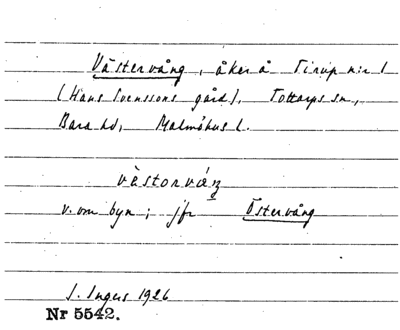 Västervång, åker å Tirup n:r 1
(Hans Svenssons gård), Tottarps sn.,
Bara hd, Malmöhus l.
vèstorváŋ
v. om byn; jfr Östervång
S. Ingers 1926
Nr 5542.